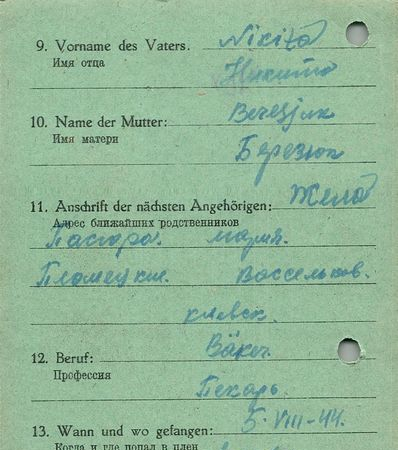 9. Vorname des Vaters. Nikita
Имя отца Никита
10. Name der Mutter: Beresjuk
Имя матери Березюк
11. Anschrift der nächsten Angehörigen: Жена
Адрес ближайших родственников
мария.
киевск.
12. Beruf: Bäker
Профессия Пекарь
13. Wann und wo gefangen: 5-VIII-44.
Когда и где попал в плен